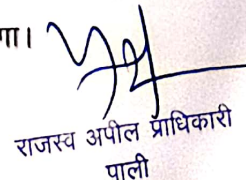 गा।
राजस्व अपील प्राधिकारी
पाली